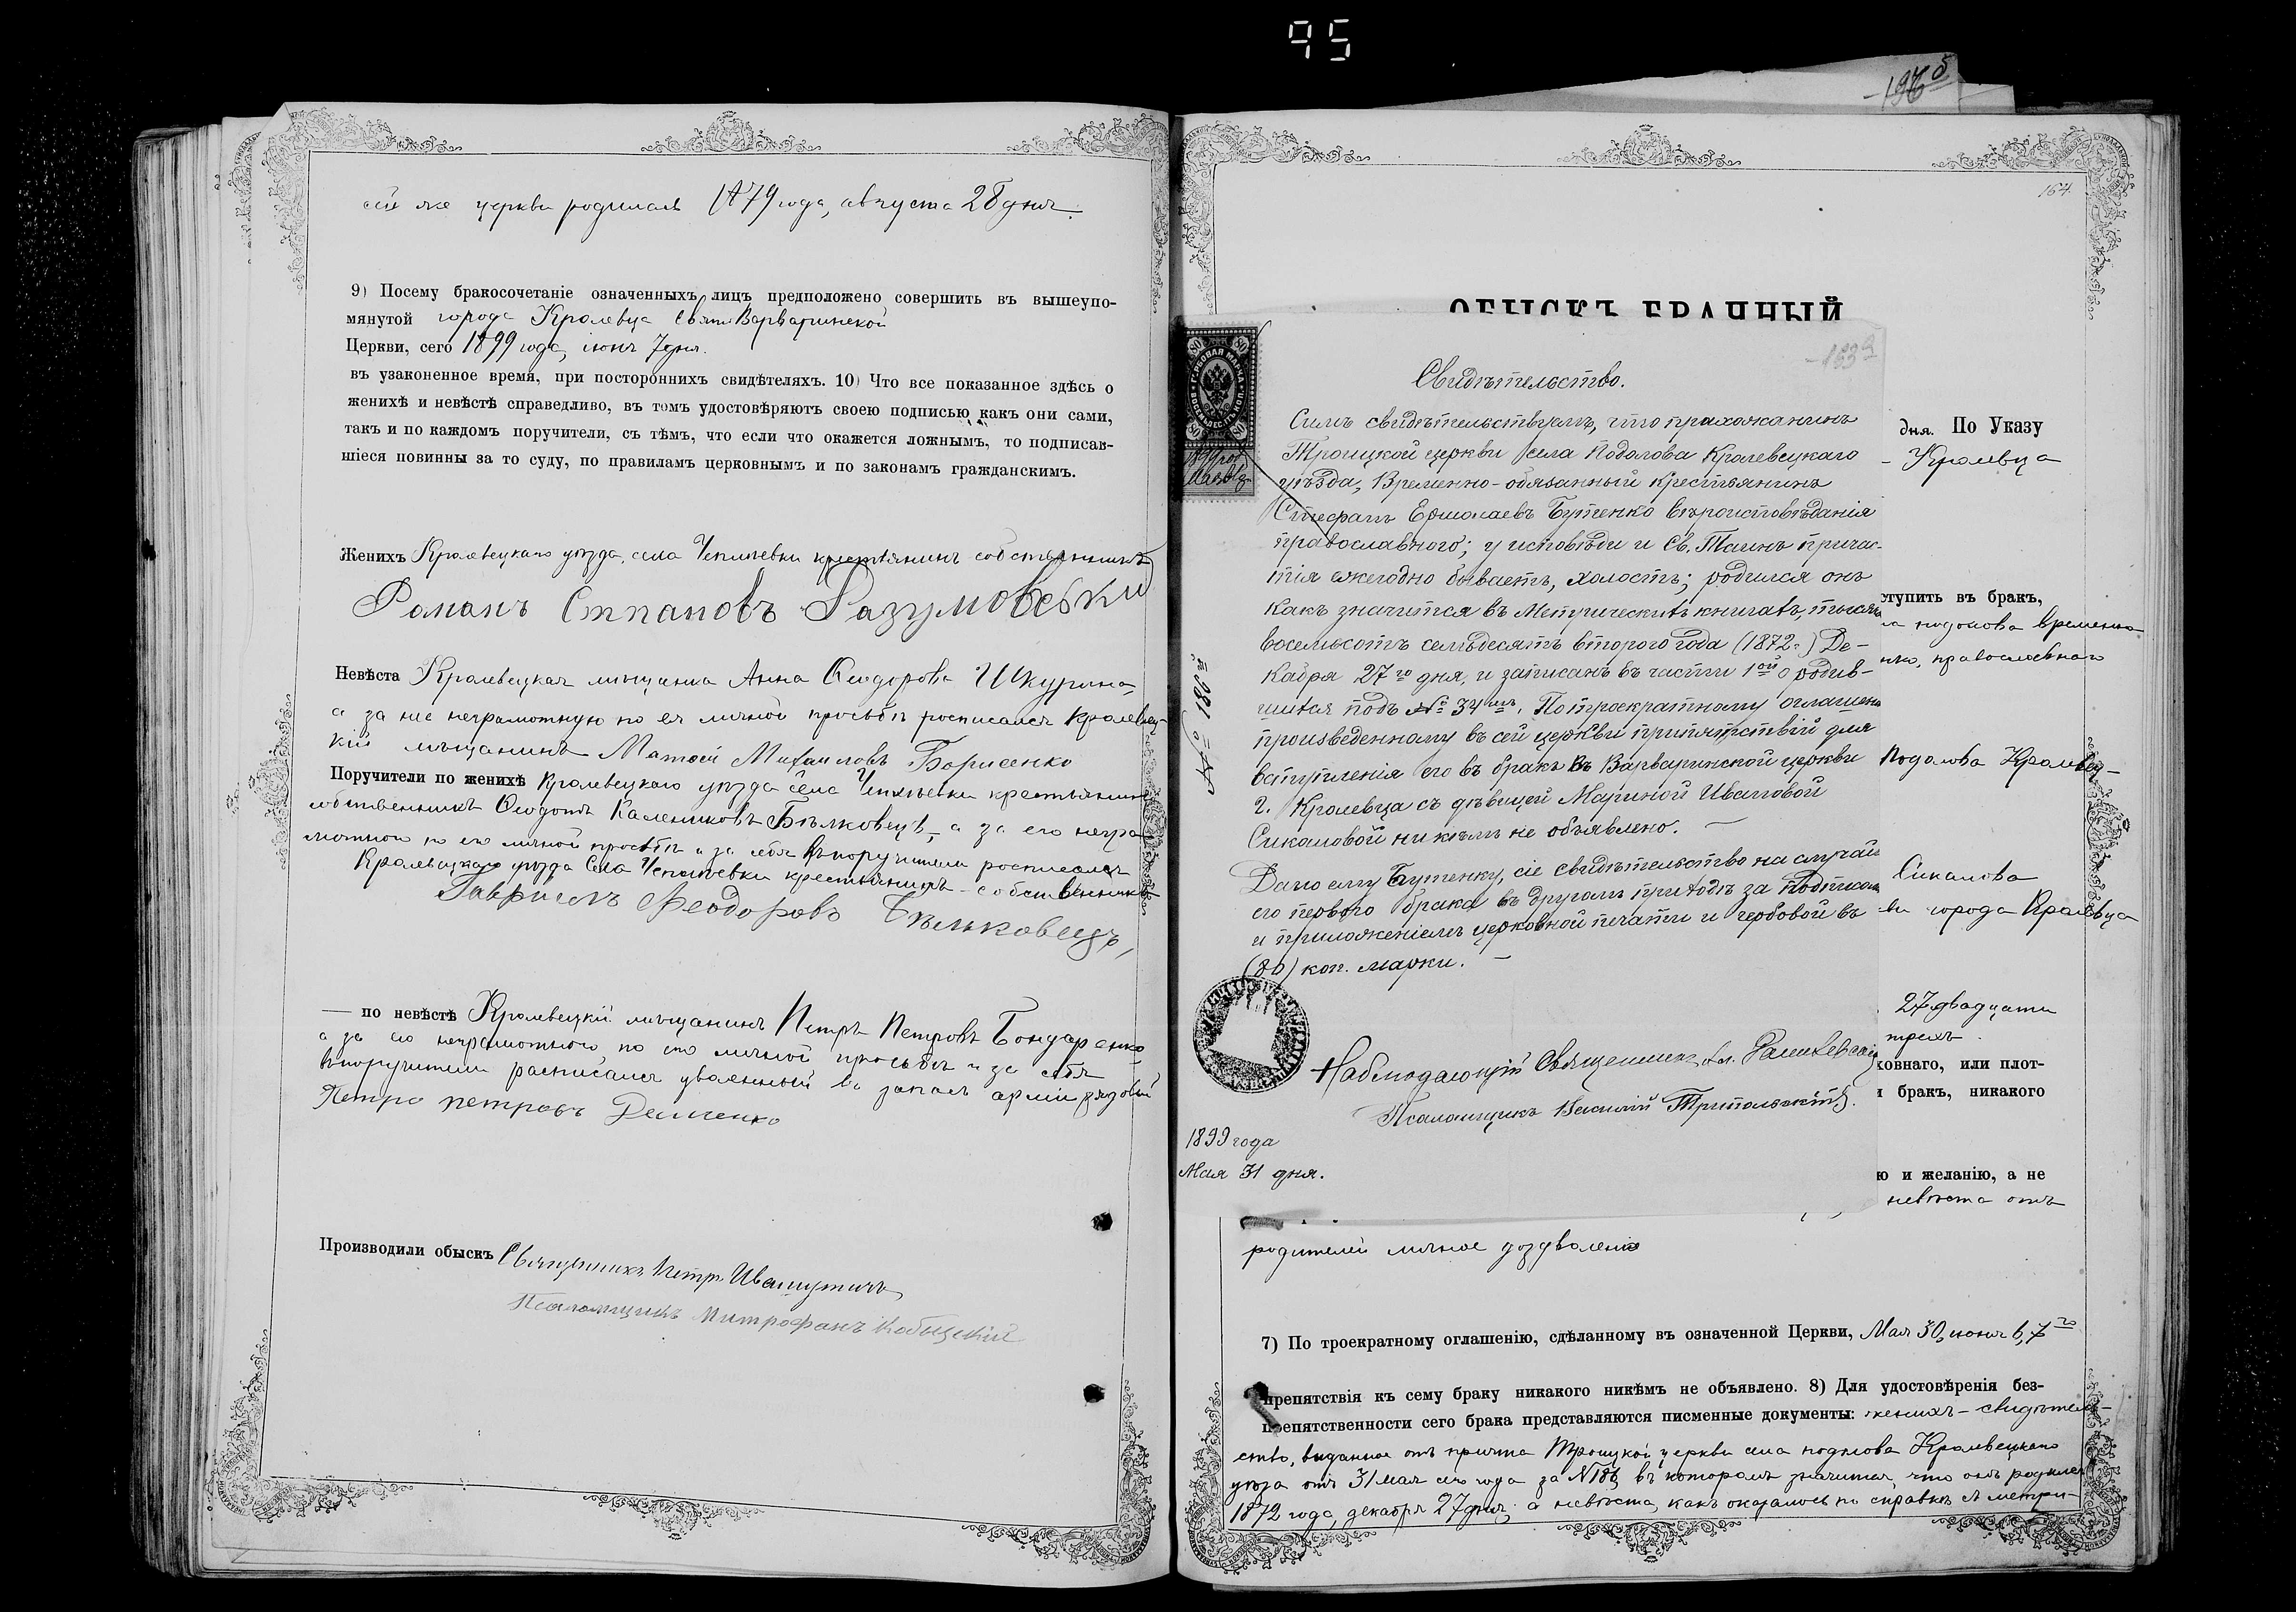 95
сей же церкви родилась 1879 года, августа 28 дня.
9) Посему бракосочетаніе означенныхъ лицъ предположено совершить въ вышеупо-
мянутой города Кролевца Свято Варваринской
Церкви, сего 1899 года, іюня 7 дня.
въ узаконенное время, при постороннихъ свидѣтеляхъ. 10) Что все показанное здѣсь о
женихѣ и невѣстѣ справедливо, въ томъ удостовѣряютъ своею подписью какъ они сами,
такъ и по каждомъ поручители, съ тѣмъ, что если что окажется ложнымъ, то подписав-
шіеся повинны за то суду, по правиламъ церковнымъ и по законамъ гражданскимъ.
Женихъ Кролевецкаго уѣзда, села Чепліевки крестьянинъ собственникъ
Романъ Стпановъ Разумовськи
Невѣста Кролевецкая мѣщанка Анна Ѳеодорова Шкурина,
а за нее неграмотную по ея личной просьбѣ росписался Кролевец-
кій мѣщанинъ Матѳей Михаиловъ Борисенко
Поручители по женихѣ Кролевецкаго уѣзда села Чепліевки крестьянинъ
собственникъ Ѳеодотъ Калениковъ Бѣлковецъ, а за его негра-
мотного по его личной просьбѣ и за себя въ поручители росписался
Кролевецкаго уѣзда Села Чепліевки крестьянинъ-собственникъ
Гавріилъ Феодоровъ Бѣлковецъ,
— по невѣстѣ Кролевецкій мѣщанинъ Петръ Петровъ Бондаренко
а за его неграмотного, по его личной просьбѣ и за себя
въ поручители расписался уволенный въ запасъ арміи рядовой
Петро петровъ Демченко
Производили обыскъ Священникъ Петръ Ивашутичъ
Псаломщикъ Митрофанъ Кобыцкій
164
ОБЫСКЪ БРАЧНЫЙ
Свидѣтельство.
Симъ свидѣтельствуемъ, что прихожанинъ
Троицкой церкви села Подолова Кролевецкаго
уѣзда, Временно-обязанный крестьянинъ
Стефанъ Ермолаевъ Бутенко вѣроисповѣданія
православного; у исповѣди и Св. Таинъ причас-
тія ежегодно бываетъ, холостъ; родился онъ
какъ значится въ Метрическихъ книгахъ, тысяча
восемьсотъ семьдесятъ второго года (1872 г.) Де-
кабря 27го дня, и записанъ въ части 1ой о родив-
шихся подъ № 34мъ. По троекратному оглашенію
произведенному въ сей церкви припятствій для
вступленія его въ бракъ въ Варваринской церкви
г. Кролевца съ дѣвицей Мариной Ивановой
Сикаловой никѣмъ не объявлено. —
Дано ему Бутенку, сіе свидѣтельство на случай
его первого брака въ другомъ приходѣ за подписомъ
и приложеніемъ церковной печати и гербовой въ
(80) коп. марки. —
Наблюдающій Священникъ
Псаломщикъ Василій Трипольскій.
1899 года
Мая 31 дня.
№ 186
ГЕРБОВАЯ МАРКА
80
дня. По Указу
Кролевца
ступить въ бракъ,
подолова временно
православнаго
Подолова Кролевец-
Сикалова
города Кролевца
27 двадцати
трехъ
ховнаго, или плот-
бракъ, никакого
ю и желанію, а не
невѣста отъ
родителей личное дозволеніе
7) По троекратному оглашенію, сдѣланному въ означенной Церкви, Мая 30, іюня 6, 7го
препятствія къ сему браку никакого никѣмъ не объявлено. 8) Для удостовѣренія без-
препятственности сего брака представляются писменные документы: женихъ - свидѣтель-
ство, выданное отъ причта Троицкой церкви села подолова Кролевецкаго
уѣзда отъ 31 мая сего года за №186, въ которомъ значится, что онъ родился
1872 года, декабря 27 дня; а невѣста, какъ оказалось по справкѣ съ метри-